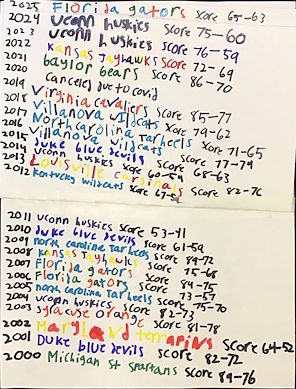 2025 Florida gators score 65-63
2024 Uconn huskies score 75-60
2023 Uconn huskies score 76-59
2022 Kansas Jayhawks score 72-69
2021 baylor bears score 86-70
2020 canceled due to covid
2019 Virginia cavaliers score 85-77
2018 Villanova wildcats score 79-62
2017 North carolina tar heels score 71-65
2016 Villanova wildcats score 77-74
2015 duke blue devils score 68-63
2014 uconn huskies score 60-54
2013 Louisville cardinals score 82-76
2012 kentucky wildcats score 67-59
2011 uconn huskies score 53-41
2010 duke blue devils score 61-59
2009 north carolina tar heels score 89-72
2008 kansas jayhawks score 75-68
2007 Florida gators score 84-75
2006 Florida gators score 73-57
2005 north carolina tar heels score 75-70
2004 uconn huskies score 82-73
2003 syracuse orange score 81-78
2002 Maryland terrapins score 64-52
2001 Duke blue devils score 82-72
2000 Michigan st spartans score 89-76